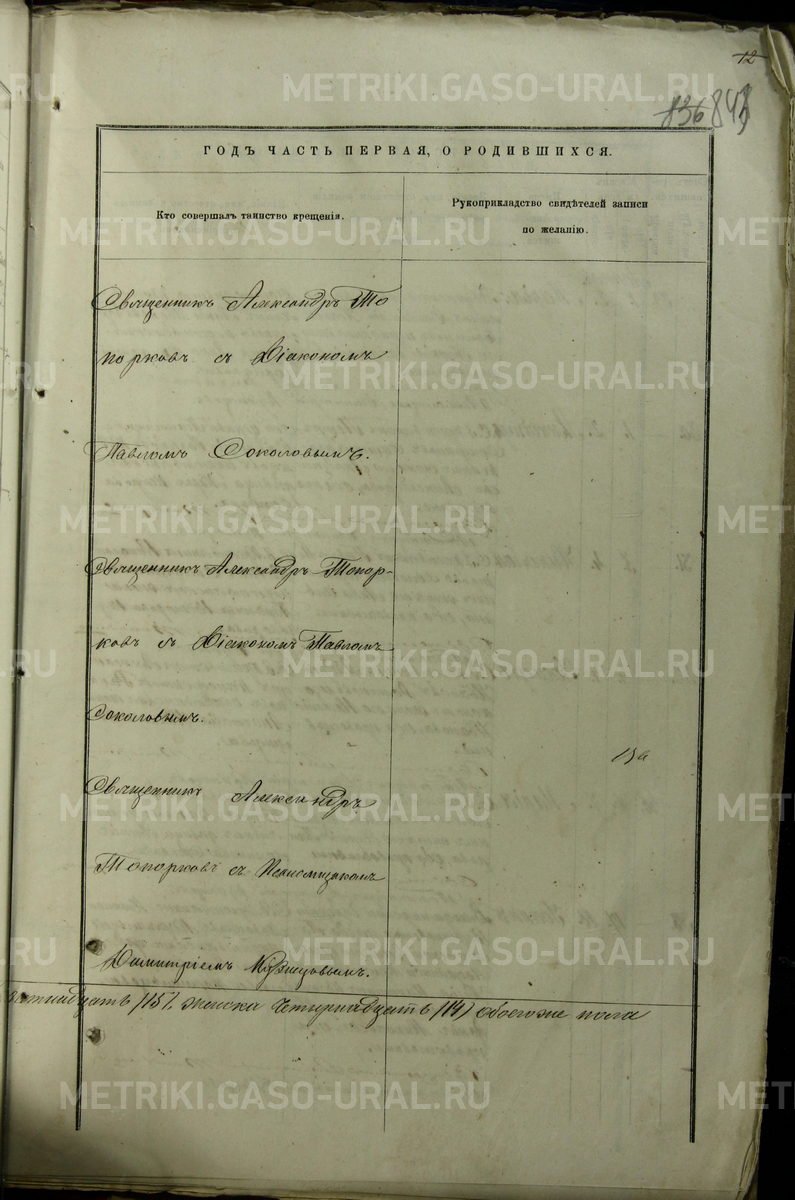 12
836 843
ГОДЪ ЧАСТЬ ПЕРВАЯ, О РОДИВШИХСЯ.
Кто совершалъ таинство крещенія.
Рукоприкладство свидѣтелей записи
по желанію.
Священникъ Александръ То
порковъ съ Діакономъ
Павломъ Соколовымъ.
Священникъ Александръ Топор-
ковъ съ Діакономъ Павломъ
Соколовымъ.
Священникъ Александръ
Топорковъ съ
Димитріемъ
/15/, женска четырнадцать /14/ обоегоже пола
METRIKI.GASO-URAL.RU